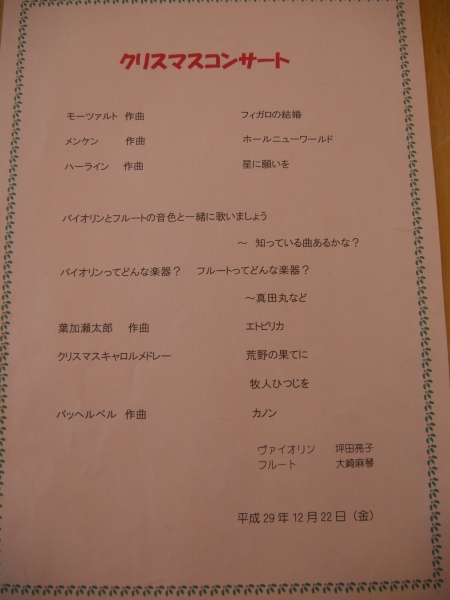 クリスマスコンサート
モーツァルト 作曲 フィガロの結婚
メンケン 作曲 ホールニューワールド
ハーライン 作曲 星に願いを
バイオリンとフルートの音色と一緒に歌いましょう
～ 知っている曲あるかな？
バイオリンってどんな楽器？ フルートってどんな楽器？
～真田丸など
葉加瀬太郎 作曲 エトピリカ
クリスマスキャロルメドレー 荒野の果てに
牧人ひつじを
パッヘルベル 作曲 カノン
ヴァイオリン 坪田亮子
フルート 大崎麻琴
平成29年12月22日（金）